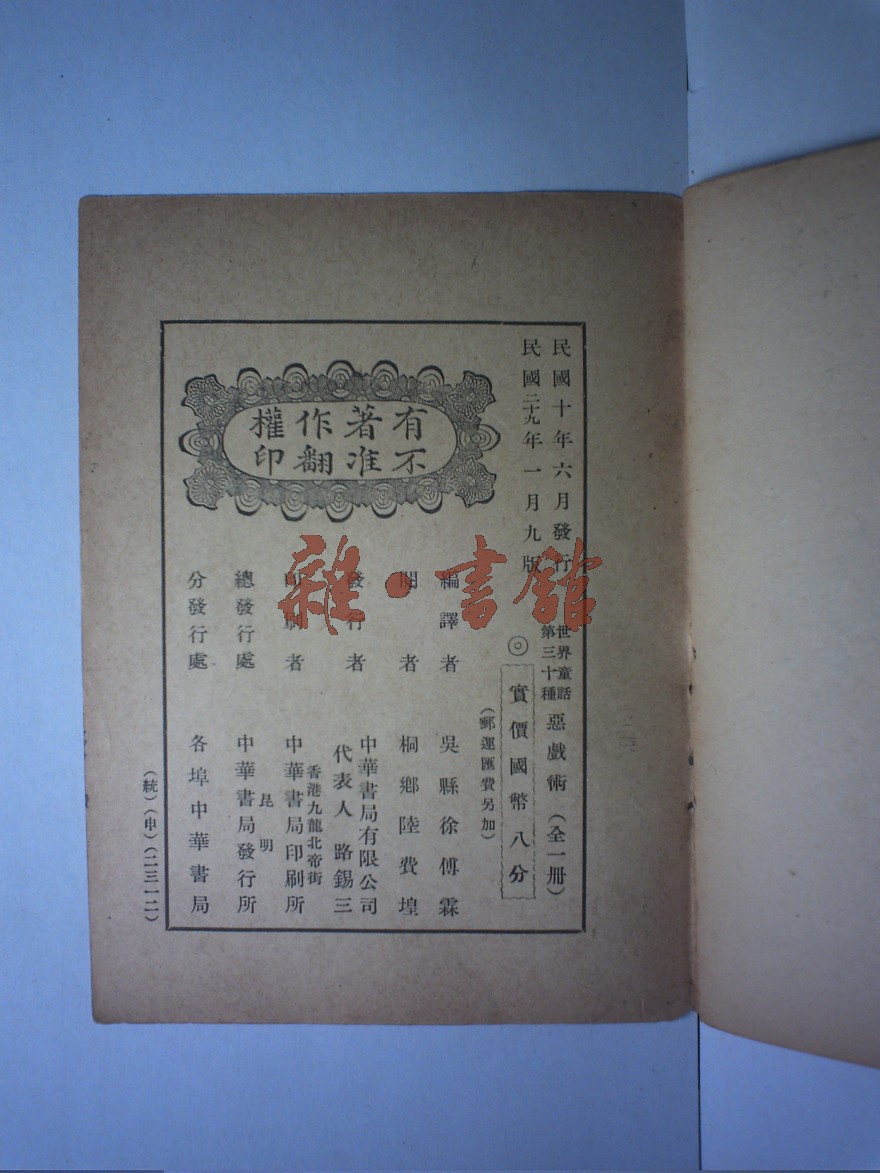 民國十年六月發行
民國二十九年一月九版
世界童話
第三十種
惡戲術（全一冊）
◎實價國幣八分
（郵運匯費另加）
有著作權
不准翻印
編譯者 吳縣徐傅霖
閱者 桐鄉陸費堭
發行者 中華書局有限公司
代表人 路錫三
印刷者 香港九龍北帝街
中華書局印刷所
總發行處 昆明
中華書局發行所
分發行處 各埠中華書局
（統）（申）（二三一二）
雜·書館